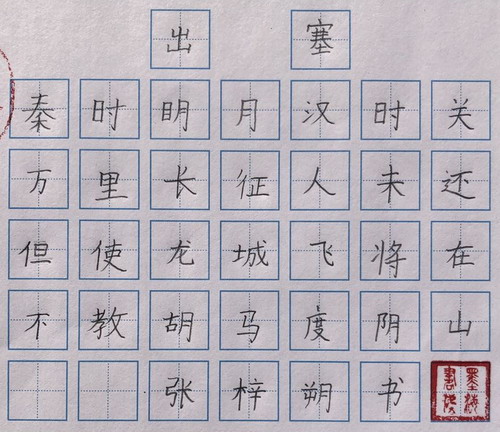 出塞
秦时明月汉时关
万里长征人未还
但使龙城飞将在
不教胡马度阴山
张梓朔书